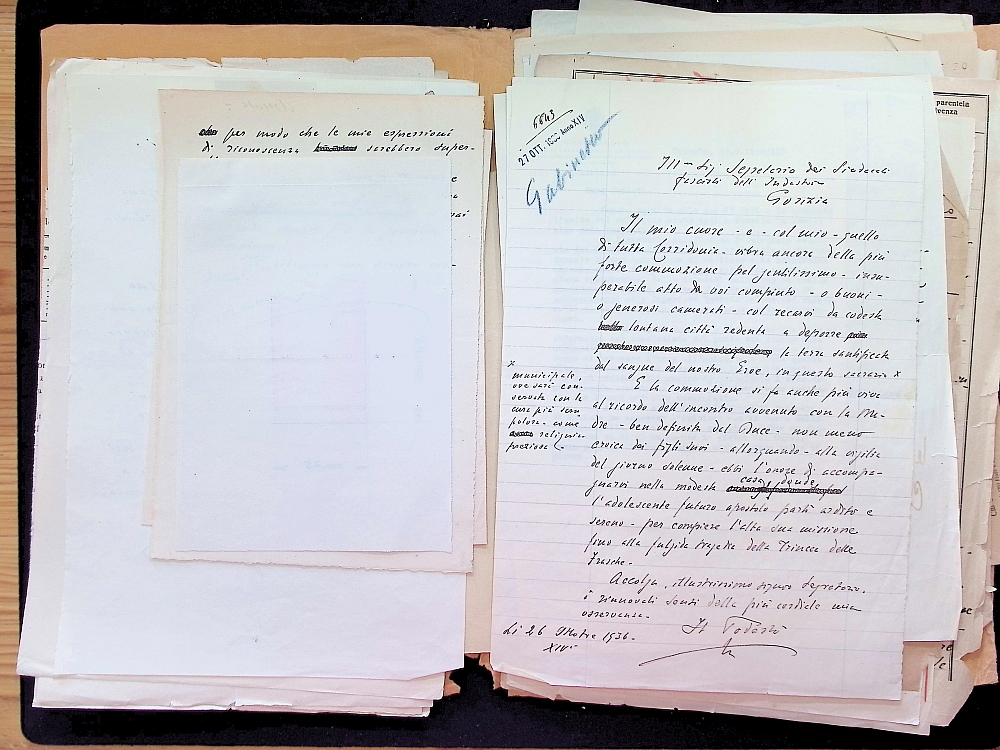 per modo che le mie espressioni
di riconoscenza sarebbero super-
6643
27 OTT. 1936 Anno XIV
Gabinetto
Ill- Sig Segretario dei Sindacati
fascisti dell'Industria
Gorizia
Il mio cuore - e - col mio - quello
di tutta Corridonia - vibra ancora della più
forte commozione pel gentilissimo - insu-
perabile atto da voi compiuto - o buoni -
o generosi camerati - col recarvi da codesta
lontana città redenta a deporre
la terra santificata
dal sangue del nostro Eroe, in questo sacrario x
x
municipale,
ove sarà con-
servata con la
cura più scru-
polosa - come
reliquia
preziosa -
E la commozione si fa anche più viva
al ricordo dell'incontro avvenuto con la Ma-
dre - ben definita dal Duce - non meno
eroica dei figli suoi - allorquando - alla vigilia
del giorno solenne - ebbi l'onore di accompa-
gnarvi nella modesta casa, donde
l'adolescente futuro apostolo partì ardito e
sereno - per compiere l'alta sua missione
fino alla fulgida tragedia della Trincea delle
Frasche -
Accolga, illustrissimo signor Segretario,
i rinnovati sensi della più cordiale mia
osservanza -
Li 26 Ottobre 1936 -
XIV°
Il Podestà